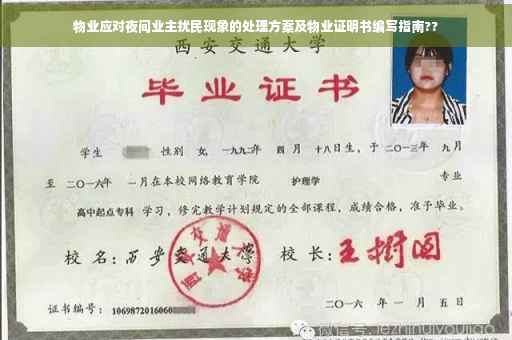 物业应对夜间业主扰民现象的处理方案及物业证明书编写指南??
西安交通大学
毕业证书
学生 性别 女, 一九九二年 四 月 十八日生, 于 二〇一三年 九月
至 二〇一六年 一月在本校网络教育学院 护理学 专业
高中起点专科 学习, 修完教学计划规定的全部课程, 成绩合格, 准予毕业。
校 名: 西安交通大学 校 长: 王树国
证书编号: 1069872016060
二〇一六 年 一 月 五 日
微信号: jezhihuiyoujiao